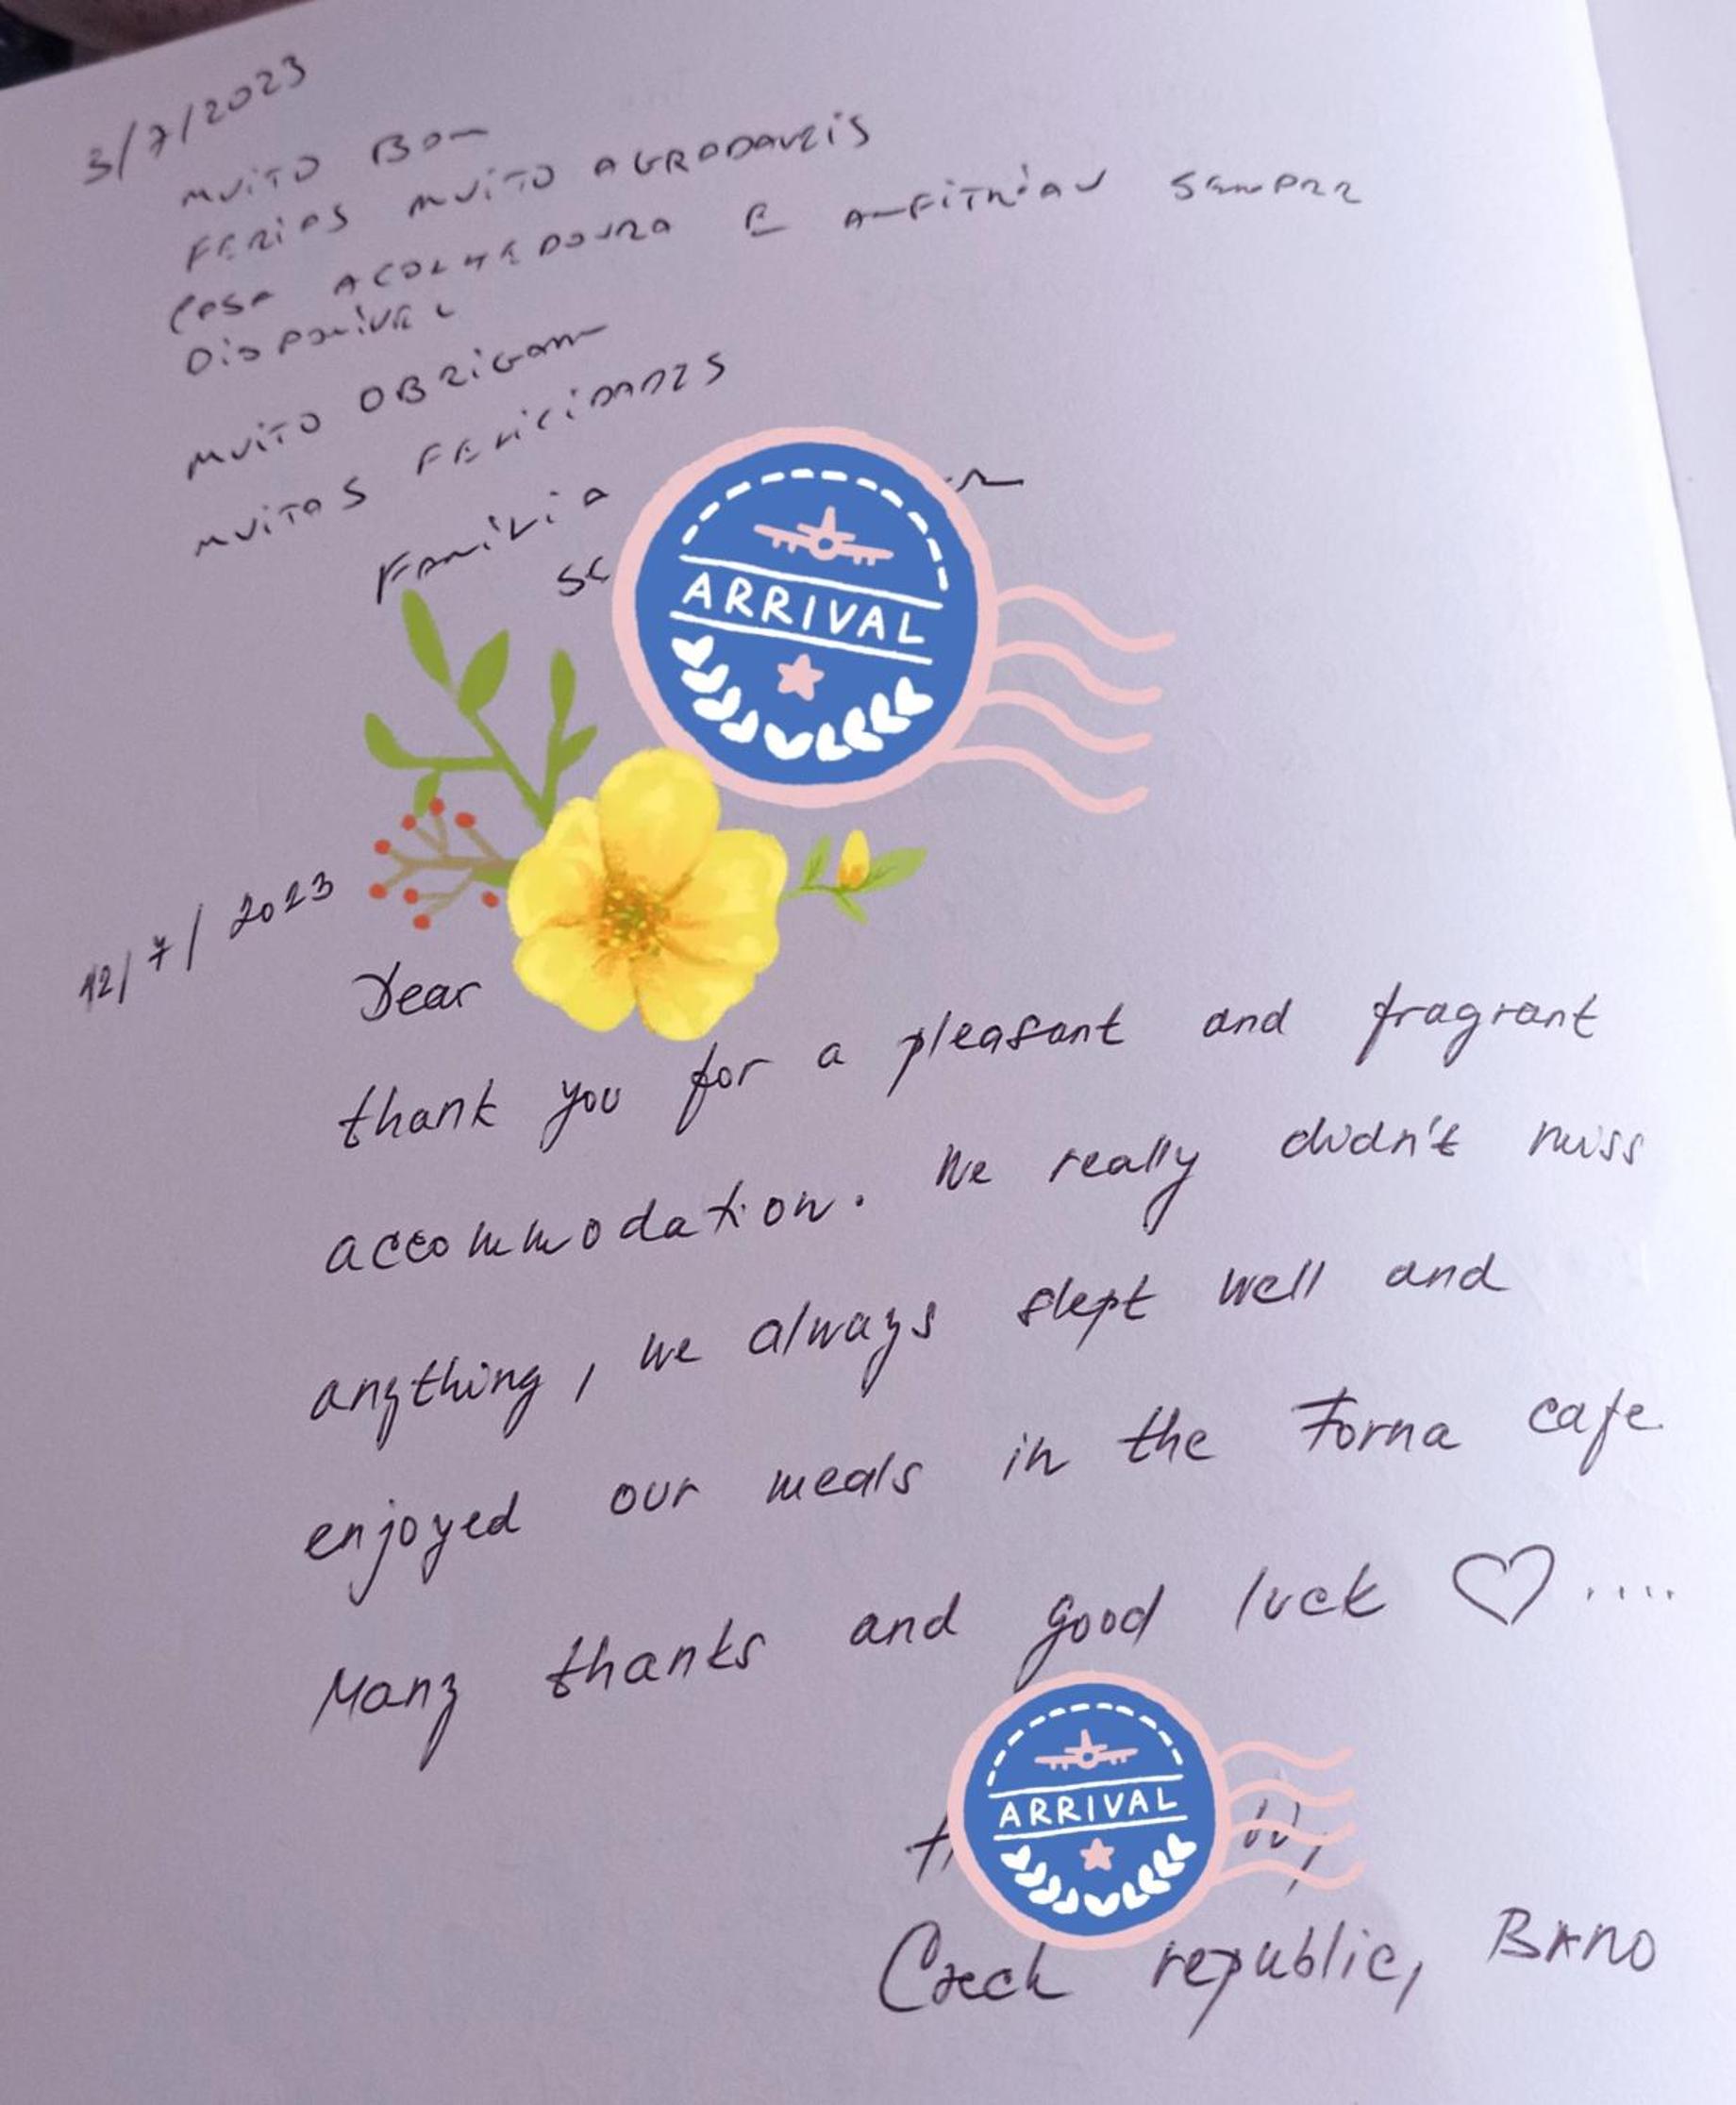 3/7/2023
MUITO BOM
FERIAS MUITO AGRADAVEIS
CASA ACOLHEDOURA E ANFITRIAO SEMPRE
DISPONIVEL
MUITO OBRIGADO
MUITAS FELICIDADES
FAMILIA
ARRIVAL
12/7/2023
Dear
thank you for a pleasant and fragrant
accommodation. We really didn't miss
anything, we always slept well and
enjoyed our meals in the Forna cafe
Many thanks and good luck ♡ ....
ARRIVAL
Czech republic, BRNO